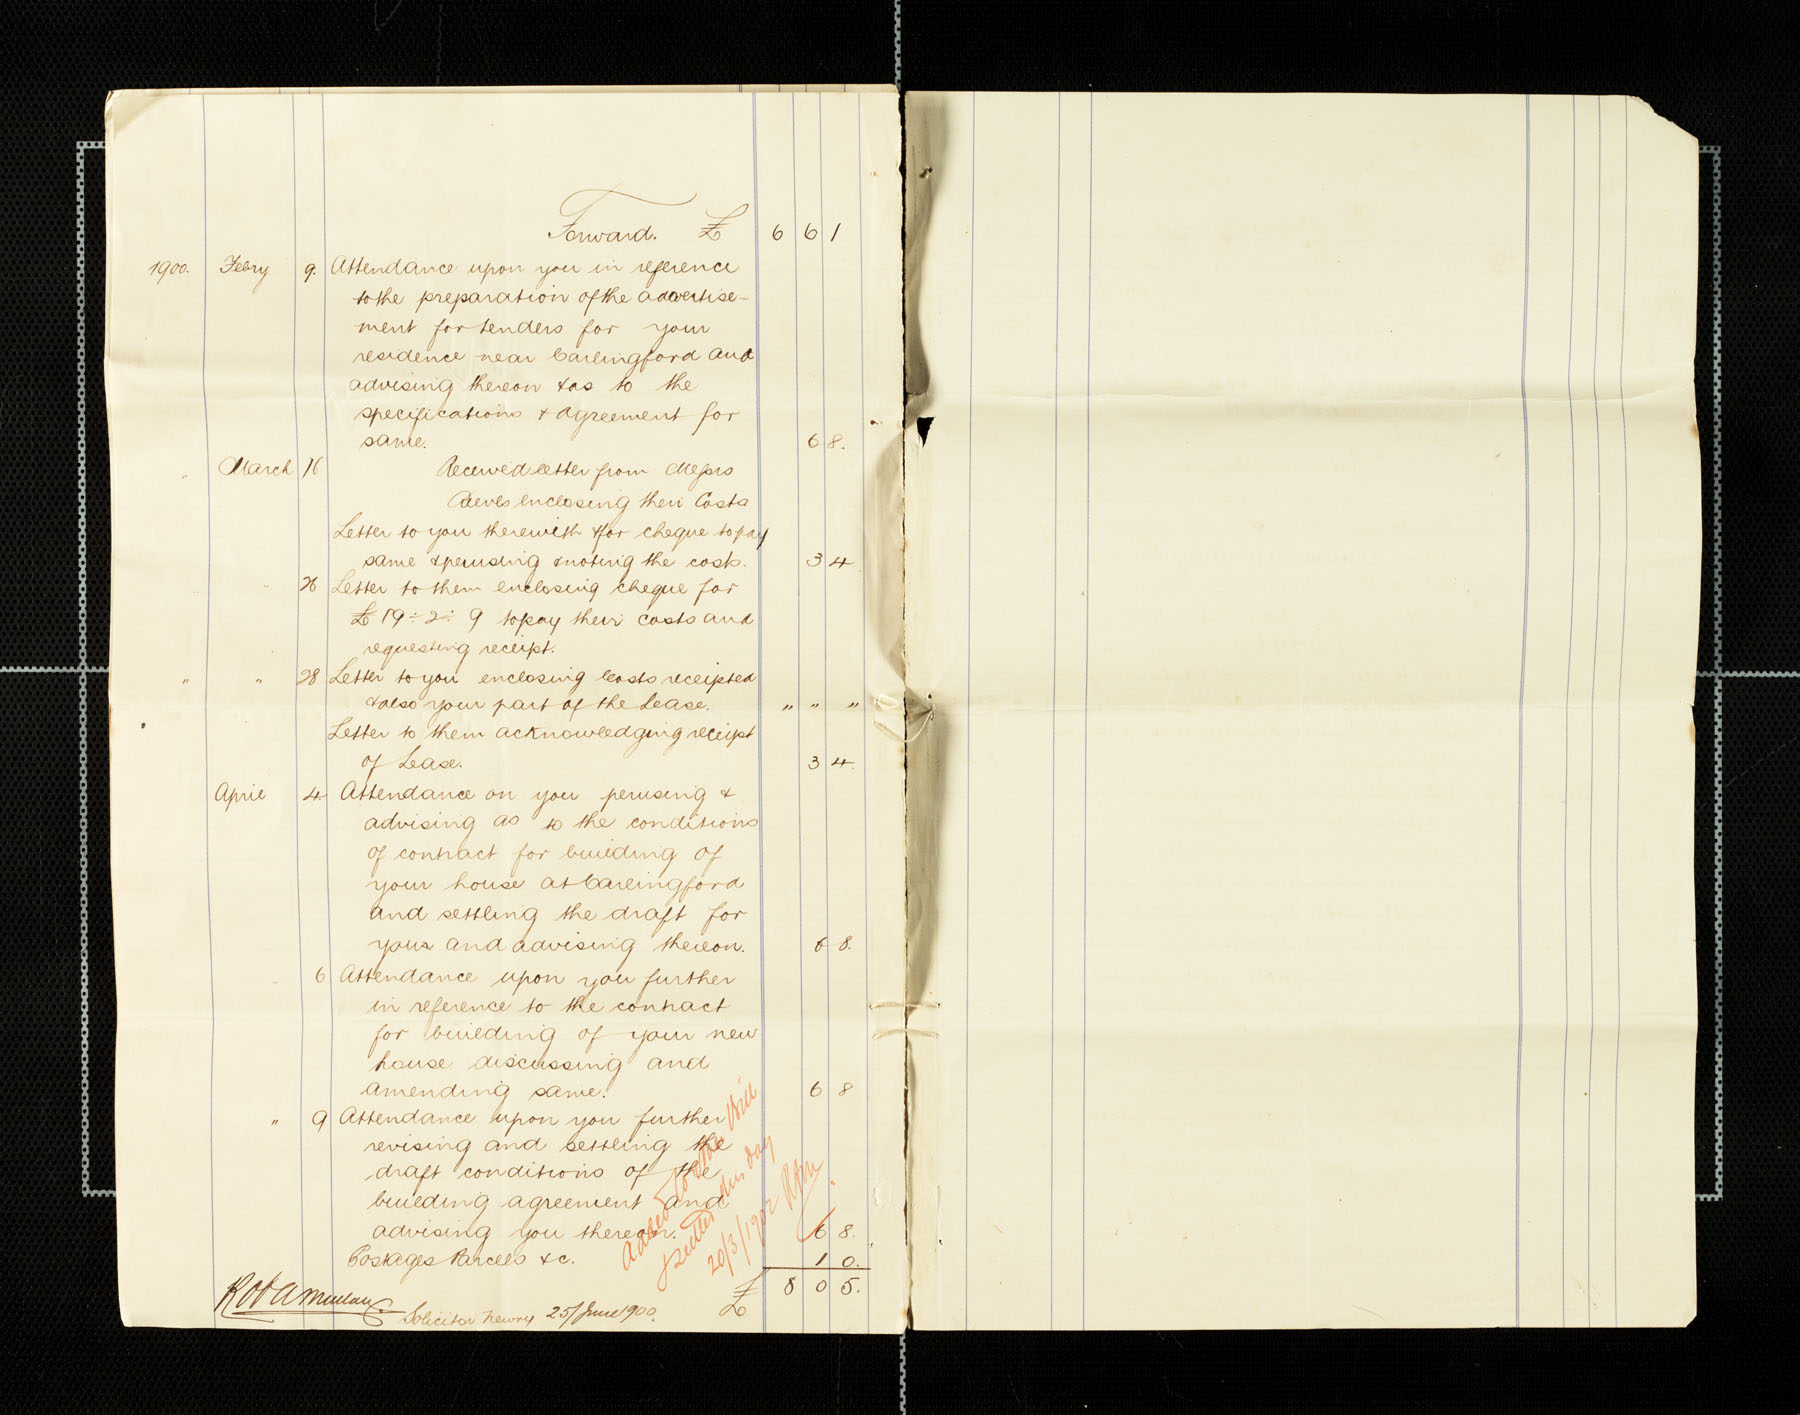 Forward. £ 6 6 1
1900. Febry 9. Attendance upon you in reference
to the preparation of the advertise-
ment for tenders for your
residence near Carlingford and
advising thereon & as to the
specifications & agreement for
same. 6 8.
" March 16 Received letter from Messrs
Reeves enclosing their Costs
Letter to you therewith & for cheque to pay
same & perusing & noting the costs. 3 4.
" 26 Letter to them enclosing cheque for
£19÷2÷9 to pay their costs and
requesting receipt.
" " 28 Letter to you enclosing Costs receipted
& also your part of the Lease. " " "
Letter to them acknowledging receipt
of Lease. 3 4.
April 4 Attendance on you perusing &
advising as to the conditions
of contract for building of
your house at Carlingford
and settling the draft for
your and advising thereon. 6 8.
" 6 Attendance upon you further
in reference to the contract
for building of your new
house discussing and
amending same. 6 8
" 9 Attendance upon you further
revising and settling the
draft conditions of the
building agreement and
advising you thereon. 6 8.
Postages Parcels &c. 1 0.
£ 8 0 5.
Solicitor Newry 25/June 1900.
Added to other Bill
& settled this day
20/3/1902